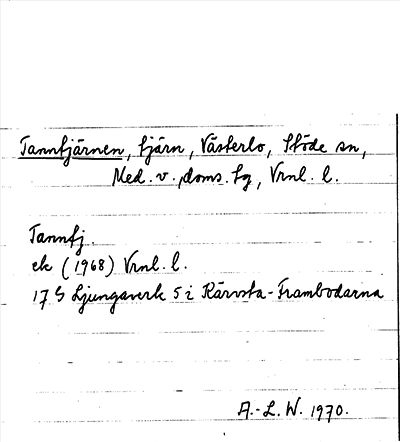 Tanntjärnen, tjärn, Västerlo, Stöde sn,
Med. v. doms. tg, Vrnl. l.
Tanntj.
ek (1968) Vrnl. l.
17 G Ljungaverk 5 i Kärvsta-Frambodarna
A.-L. W. 1970.